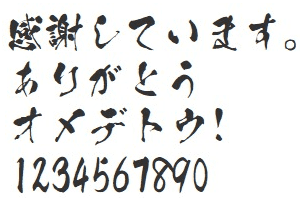 感謝しています。
ありがとう
オメデトウ!
1234567890